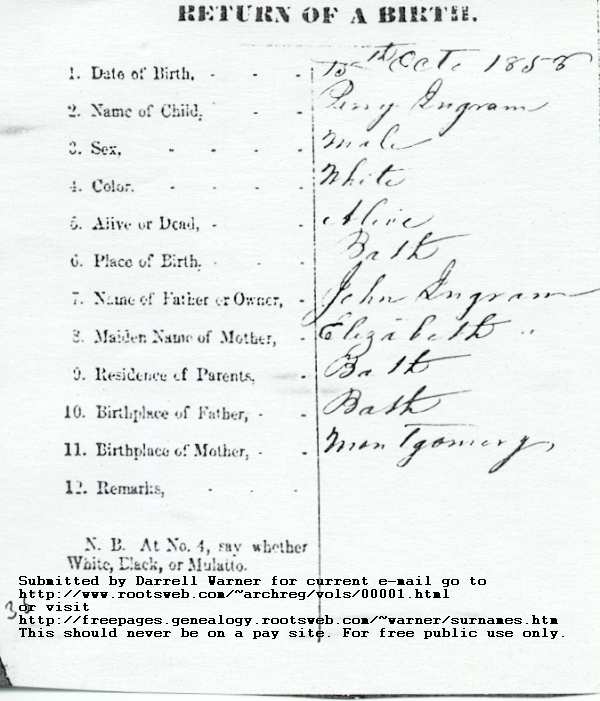 RETURN OF A BIRTH.
1. Date of Birth, - - - 15th Octo 1858
2. Name of Child, - - Perry Ingram
3. Sex, - - - - Male
4. Color. - - - - White
5. Alive or Dead, - - Alive
6. Place of Birth, - - - Bath
7. Name of Father or Owner, - John Ingram
8. Maiden Name of Mother, - Elizabeth "
9. Residence of Parents, - Bath
10. Birthplace of Father, - - Bath
11. Birthplace of Mother, - - Montgomery
12. Remarks, - - -
N. B. At No. 4, say whether
White, Black, or Mulatto.
Submitted by Darrell Warner for current e-mail go to
http://www.rootsweb.com/~archreg/vols/00001.html
or visit
http://freepages.genealogy.rootsweb.com/~warner/surnames.htm
This should never be on a pay site. For free public use only.